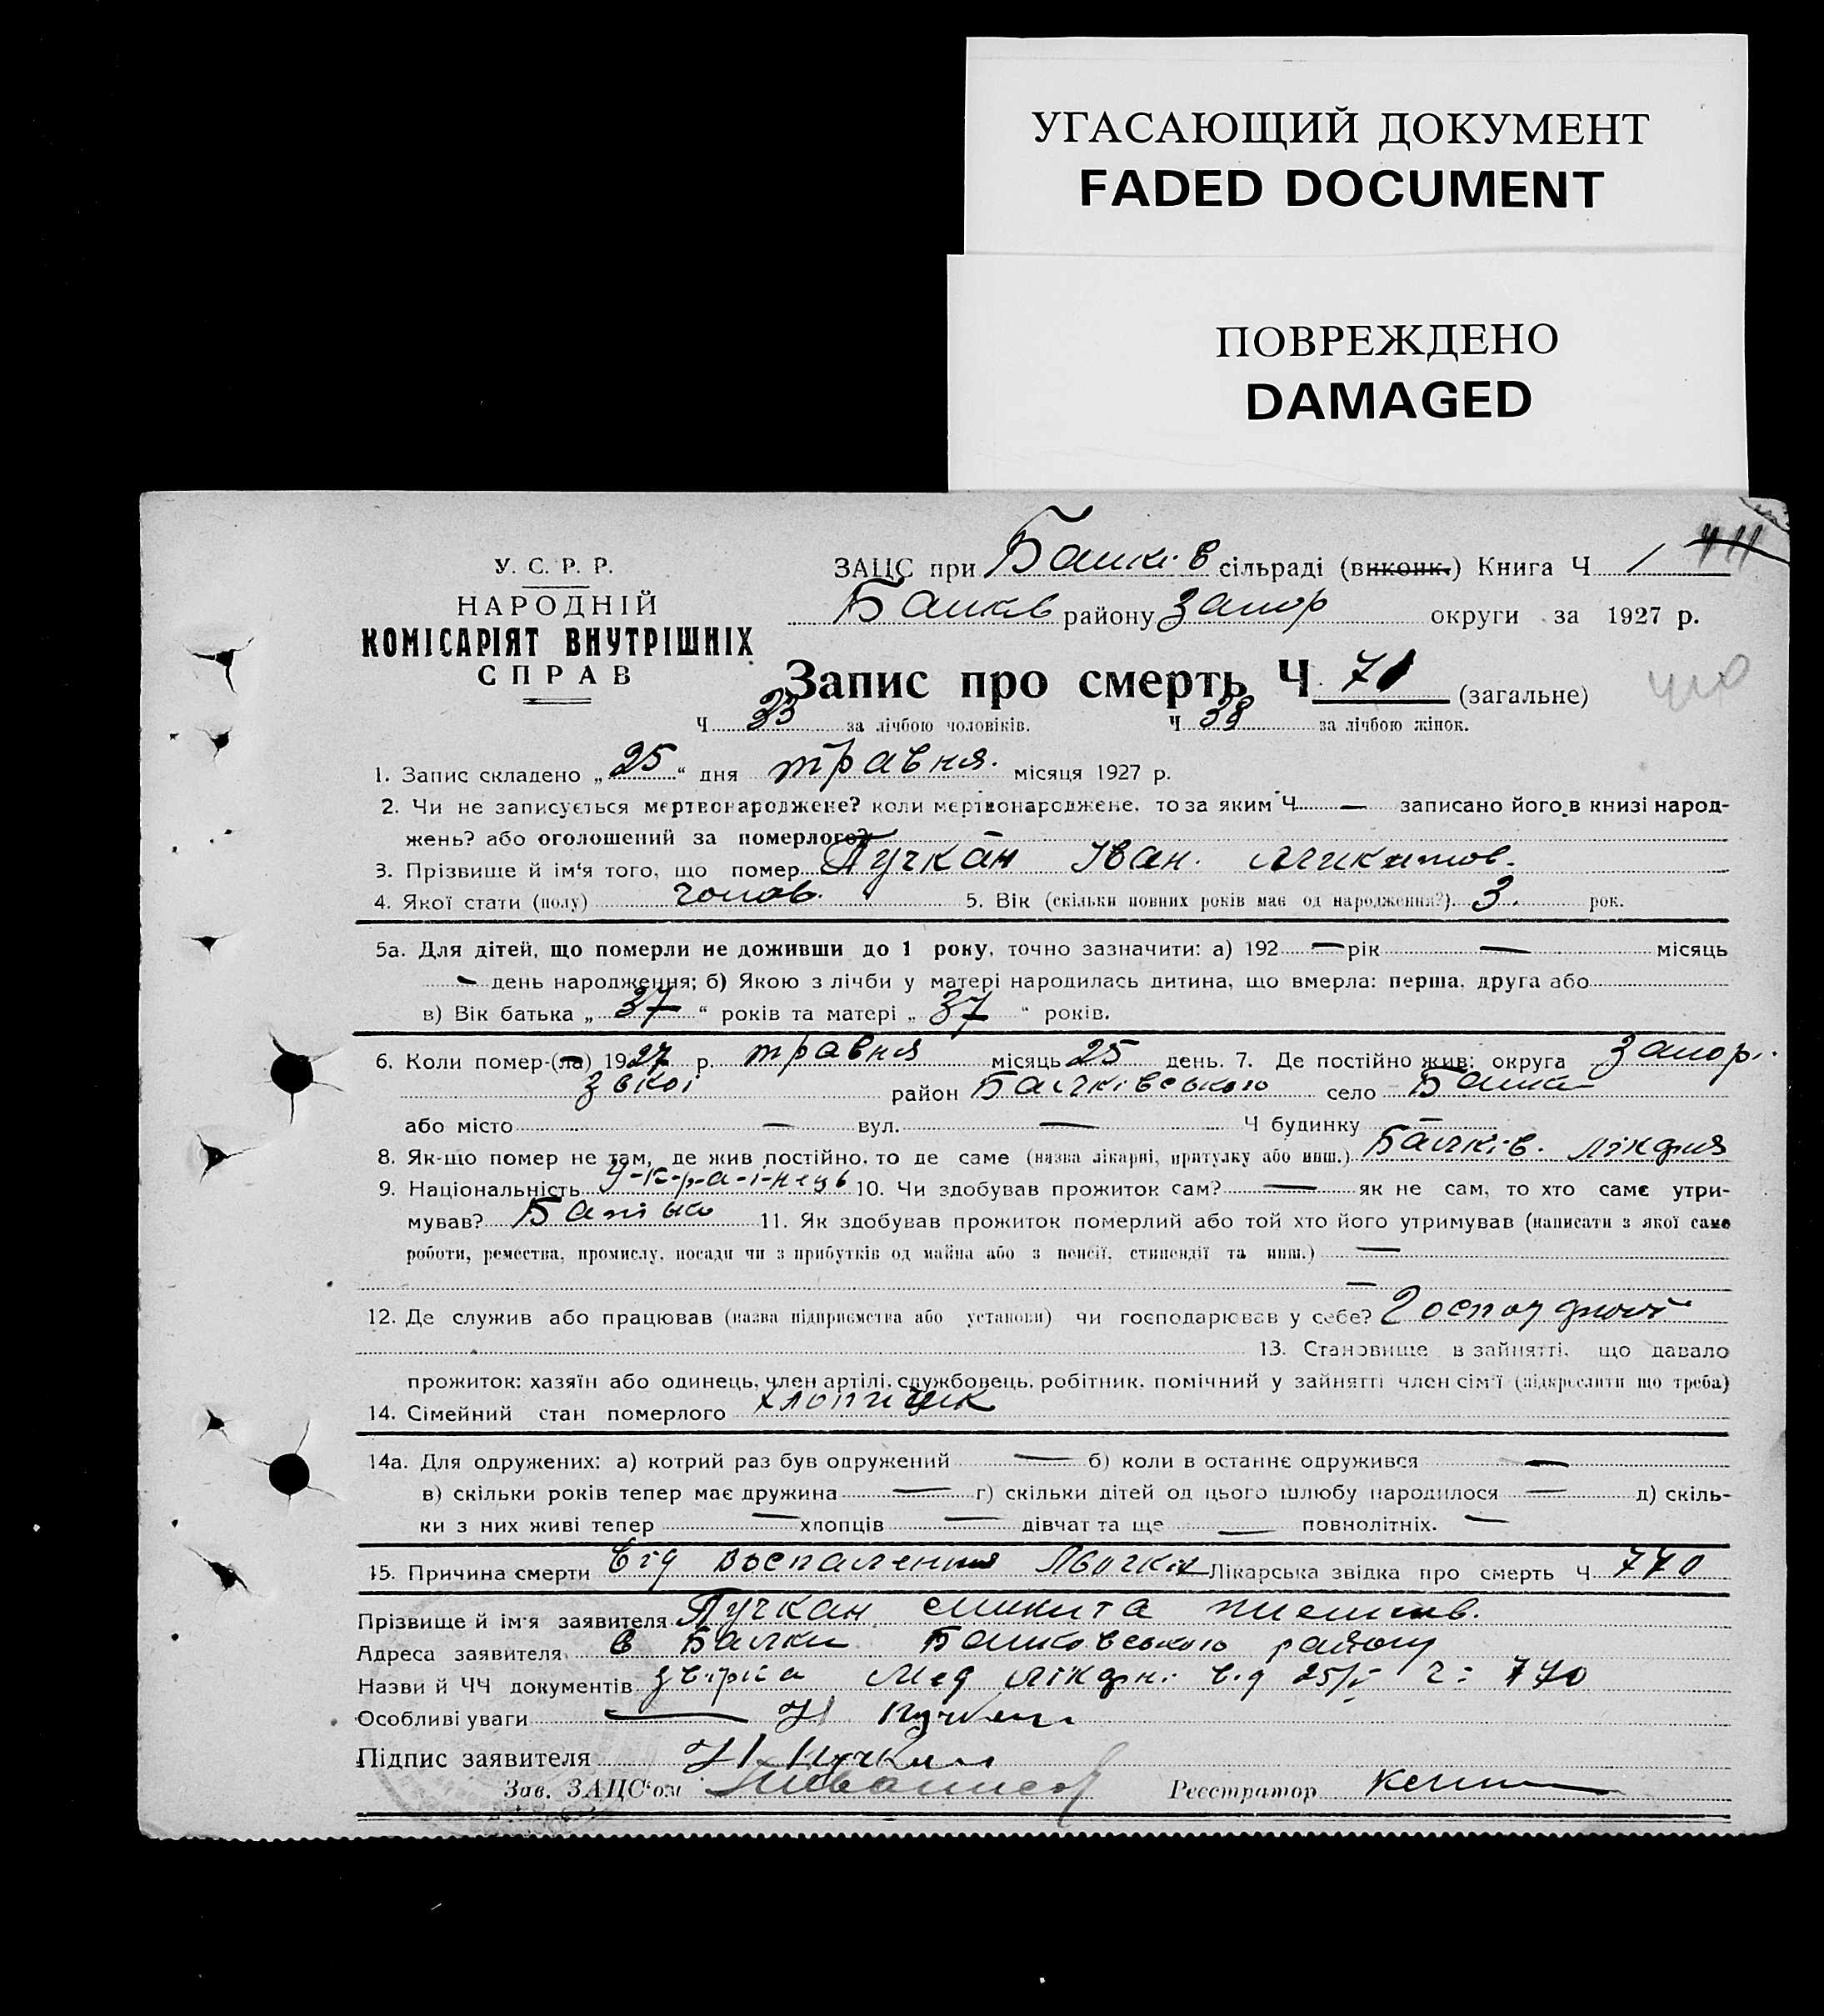 УГАСАЮЩИЙ ДОКУМЕНТ
FADED DOCUMENT
ПОВРЕЖДЕНО
DAMAGED
У. С. Р. Р.
НАРОДНІЙ
КОМІСАРІЯТ ВНУТРІШНІХ
СПРАВ
ЗАЦС при Балків сільраді (виконк.) Книга Ч 1
Балків району Запор округи за 1927 р.
Запис про смерть Ч 71 (загальне)
Ч 33 за лічбою чоловіків. Ч 38 за лічбою жінок.
1. Запис складено „25“ дня травня. місяця 1927 р.
2. Чи не записується мертвонароджене? коли мертвонароджене, то за яким Ч — записано його в книзі народ-
жень? або оголошений за померлого?
3. Прізвище й ім‘я того, що помер Пучкан Іван. Микитов.
4. Якої стати (полу) чолов. 5. Вік (скільки повних років має од народження?) 3. рок.
5а. Для дітей, що померли не доживши до 1 року, точно зазначити: а) 192 — рік — місяць
— день народження; б) Якою з лічби у матері народилась дитина, що вмерла: перша, друга або
в) Вік батька „37“ років та матері „37“ років.
6. Коли помер-(ла) 1927 р. травня місяць 25 день. 7. Де постійно жив: округа Запорі-
зької район Балківського село Балки
або місто — вул. — Ч будинку —
8. Як-що помер не там, де жив постійно, то де саме (назва лікарні, притулку або инш.) Балків. лікарня
9. Національність У-к-р-а-ї-нець 10. Чи здобував прожиток сам? — як не сам, то хто саме утри-
мував? Батько 11. Як здобував прожиток померлий або той хто його утримував (написати з якої саме
роботи, ремества, промислу, посади чи з прибутків од майна або з пенсії, стипендії та инш.) —
—
12. Де служив або працював (назва підприємства або установи) чи господарював у себе?
13. Становище в зайнятті, що давало
прожиток: хазяїн або одинець, член артілі, службовець, робітник, помічний у зайнятті член сім‘ї (підкреслити що треба)
14. Сімейний стан померлого хлопчик
14а. Для одружених: а) котрий раз був одружений — б) коли в останнє одружився —
в) скільки років тепер має дружина — г) скільки дітей од цього шлюбу народилося — д) скіль-
ки з них живі тепер — хлопців — дівчат та ще — повнолітніх. —
15. Причина смерти Від воспалення Лікарська звідка про смерть Ч 770
Прізвище й ім‘я заявителя Пучкан Микита
Адреса заявителя с Балки Балківського району
Назви й ЧЧ документів Мед лікарні від 25/V ч: 770
Особливі уваги —
Підпис заявителя
Зав. ЗАЦС‘ом Реєстратор